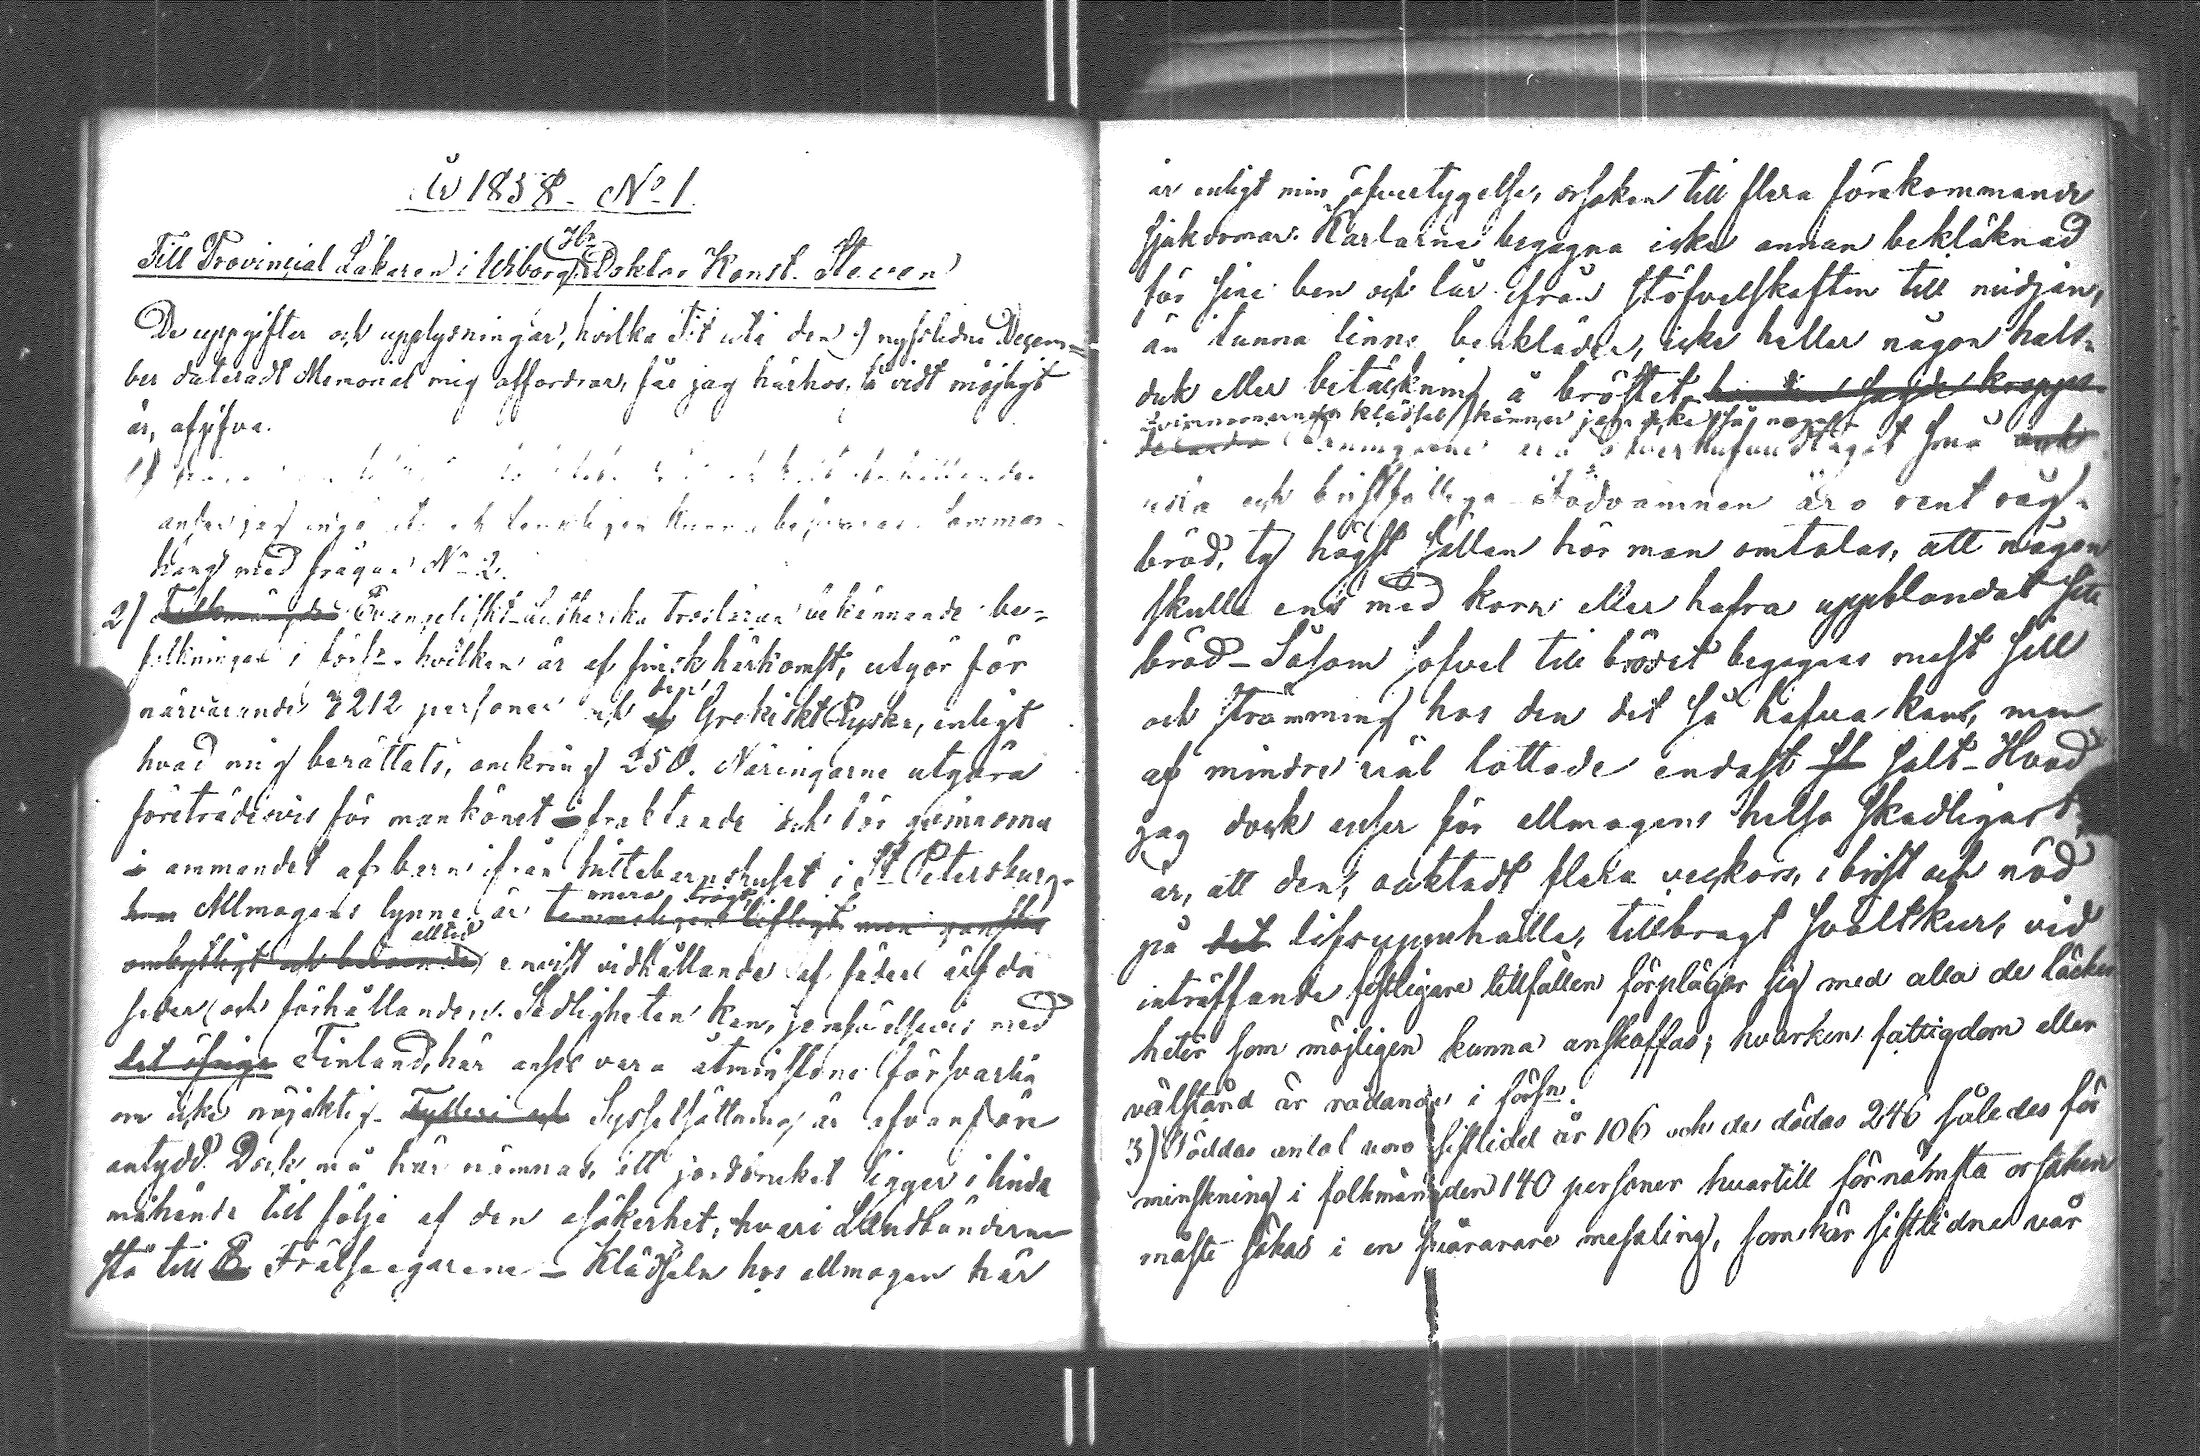 År 1858. No 1.
Till Provincial Läkaren i Wiborg Hr Doktor Konst. Steven
De uppgifter och upplysningar, hvilka Tit uti den 9 nyssledne Decem=
ber dateradt Memorial mig affordrar, får jag härhos, så vidt möjligt
är, afgifva.
1)
anser jag kunna besvaras i samman-
hang med frågan No 2.
2) Folkmängden Evangeliskt-Lutherska trosläran bekännande be-
folkningen i förs:n hvilken är af finsk härkomst, utgör för
närvarande 7212 personer och den Grekiskt Ryska, enligt
hvad mig berättats, omkring 250. Näringarne utgöra
företrädesvis för mankönet fraktande och för qvinnorna
i ammandet af barn ifrån hittebarnshuset i St Petersburg.
Allmogens lynne är mera trögt, temmeligen lifligt men ganska
ombytligt och beroende alltid envist vidhållande af fäders ärfda
seder och förhållanden. Sedligheten kan, jemförelsevis med
det öfriga Finland, här anses vara åtminstone försvarlig
om icke nöjaktig. Fylleri och Sysselsättning är ofvanföre
antydd. Dock må här nämnas, att jordbruket ligger i linda
måhända till följe af den osäkerhet, hvari Landbönderna
stå till Frälseegarene - Klädseln hos allmogen här
är enligt min öfvertygelse, orsaken till flera förekommande
sjukdomar. Karlarne begagna icke annan beklädnad
för sine ben och lår ifrån stöfvelskaften till midjan,
än tunna linne benkläder, icke heller någon hals-
duk eller betäckning å bröstet.
Qvinnornernas klädsel känner jag icke så noga.
Boningarne era öfverhufvudtaget små
usla och bristfälliga födoämnen äro rent råg-
bröd, ty högst sällan hör man omtalas, att någon
skulle ens med korn eller hafra uppblandat sitt
bröd - Såsom sofvel till brödet begagnas mest sill
och strömming hos den det så hafva kan, men
af mindre väl lottade endast salt - Hvad
jag dock anser för allmogens helsa skadligast,
är, att den, oaktadt flera veckors, i brist och nöd
på det lifsuppehälle, tillbragt svältkur, vid
inträffande festligare tillfällen förplägar sig med alla de läcker
heter som möjligen kunna anskaffas; hvarken fattigdom eller
välstånd är rådande i förs:n.
3) Föddas antal voro sistlidet år 106 och de dödas 246 således för
minskning i folkmängden 140 personer hvartill förnämsta orsaken
måste sökas i en svårarare messling, som här sistlidne vår